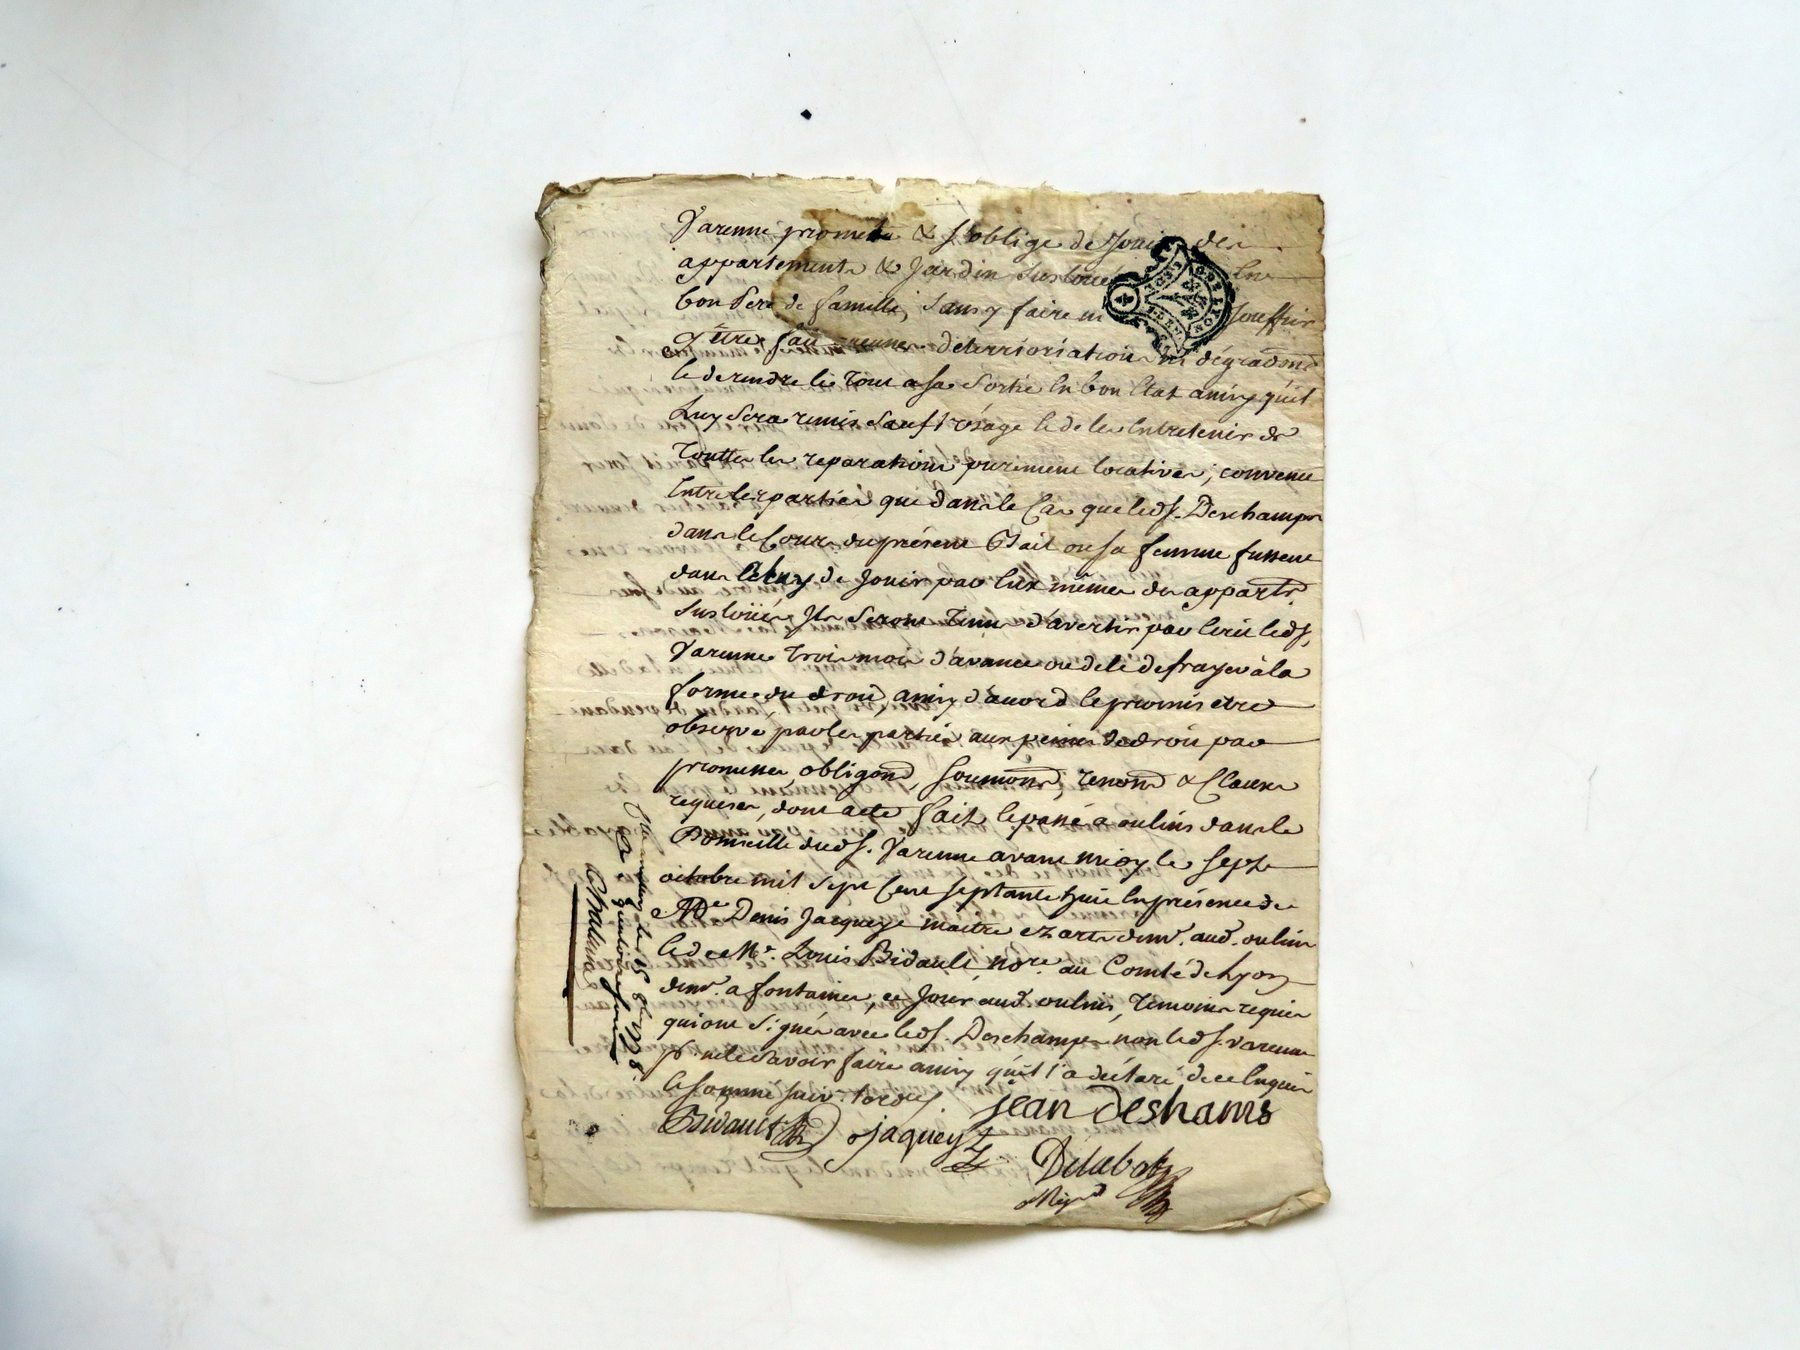 Varenne promet & s'oblige de Jouir des
appartements & Jardin susloués En
bon Pere de famille, sans y faire ni souffrir
être fait aucunes déterrioriations ni dégradons
Et de rendre le Tout a sa Sortie En bon Etat ainsy qu'il
Luy Sera remis Sauf l'usage Et de les Entretenir de
Touttes les reparations purement locatives; convenu
Entre les parties que dans le Cas que led s. Deschamps
dans le Cours du présent Bail ou sa femme fussent
dans le Cas de Jouir par Eux mêmes des appartts.
Susloüés Ils Seront Tenus d'avertir par Ecrit led s.
Varenne Trois mois d'avance ou de le defrayer à la
forme du droit, ainsy d'acord Et promis être
observé par les parties aux peines de droit par
promesses, obligons, soumons, renons & Clauses
requises, dont acte fait Et passé a oulins dans le
Domicille dud s. Varenne avant midy le sept
octobre mil sept Cent septante huit En présence de
Denis Jacquey maitre ez arts demt. aud. oulins
Et de Me. Louis Bidault nore. au Comté de Lyon
demt. a fontaines, ce Jour aud. oulins, Temoins requis
qui ont signés avec led s. Deschamps non led s. varenne
pr. ne le savoir faire ainsy qu'il l'a déclaré de ce Enquis
Et sommé suivt. l'ordce.
jean deshams
Bidault Jaquey
Delabor
8bre 1778.
quatorze sous
DE LYON